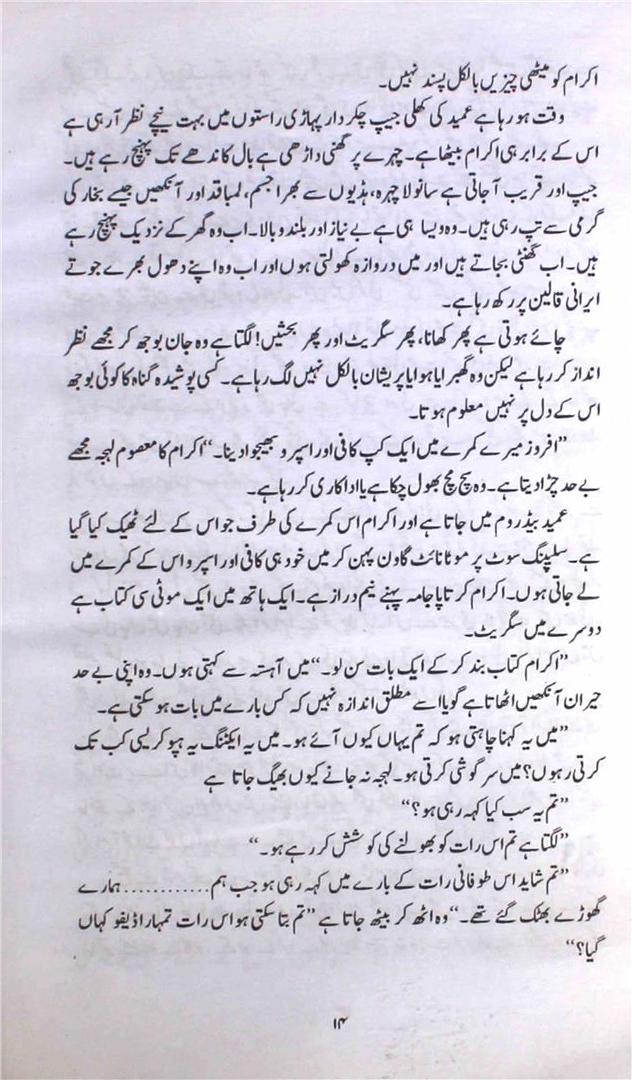 اکرام کو میٹھی چیزیں بالکل پسند نہیں۔
وقت ہو رہا ہے عمید کی کھلی جیپ چکردار پہاڑی راستوں میں بہت نیچے نظر آرہی ہے
اس کے برابر ہی اکرام بیٹھا ہے۔ چہرے پر گھنی داڑھی ہے بال کاندھے تک پہنچ رہے ہیں۔
جیپ اور قریب آجاتی ہے سانولا چہرہ، ہڈیوں سے بھرا جسم، لمبا قد اور آنکھیں جیسے بخار کی
گرمی سے تپ رہی ہیں۔ وہ ویسا ہی ہے بے نیاز اور بلند و بالا۔ اب وہ گھر کے نزدیک پہنچ رہے
ہیں۔ اب گھنٹی بجاتے ہیں اور میں دروازہ کھولتی ہوں اور اب وہ اپنے دھول بھرے جوتے
ایرانی قالین پر رکھ رہا ہے۔
چائے ہوتی ہے پھر کھانا، پھر سگریٹ اور پھر بحثیں! لگتا ہے وہ جان بوجھ کر مجھے نظر
انداز کر رہا ہے لیکن وہ گھبرایا ہوا یا پریشان بالکل نہیں لگ رہا ہے۔ کسی پوشیدہ گناہ کا کوئی بوجھ
اس کے دل پر نہیں معلوم ہوتا۔
”افروز میرے کمرے میں ایک کپ کافی اور اسپرو بھیجوا دینا۔“ اکرام کا معصوم لہجہ مجھے
بے حد چڑا دیتا ہے۔ وہ سچ مچ بھول چکا ہے یا اداکاری کر رہا ہے۔
عمید بیڈ روم میں جاتا ہے اور اکرام اس کمرے کی طرف جو اس کے لئے ٹھیک کیا گیا
ہے۔ سلپنگ سوٹ پر موٹا نائٹ گاون پہن کر میں خود ہی کافی اور اسپرو اس کے کمرے میں
لے جاتی ہوں۔ اکرام کرتا پاجامہ پہنے نیم دراز ہے۔ ایک ہاتھ میں ایک موٹی سی کتاب ہے
دوسرے میں سگریٹ۔
”اکرام کتاب بند کر کے ایک بات سن لو۔“ میں آہستہ سے کہتی ہوں۔ وہ اپنی بے حد
حیران آنکھیں اٹھاتا ہے گویا اسے مطلق اندازہ نہیں کہ کس بارے میں بات ہو سکتی ہے۔
”میں یہ کہنا چاہتی ہو کہ تم یہاں کیوں آئے ہو۔ میں یہ ایکٹنگ یہ ہپوکریسی کب تک
کرتی رہوں؟ میں سرگوشی کرتی ہو۔ لہجہ نہ جانے کیوں بھیگ جاتا ہے
”تم یہ سب کیا کہہ رہی ہو؟“
”لگتا ہے تم اس رات کو بھولنے کی کوشش کر رہے ہو۔“
”تم شاید اس طوفانی رات کے بارے میں کہہ رہی ہو جب ہم............ہمارے
گھوڑے بھٹک گئے تھے۔“ وہ اٹھ کر بیٹھ جاتا ہے ”تم بتا سکتی ہو اس رات تمہارا ڈیفو کہاں
گیا؟“
۱۴